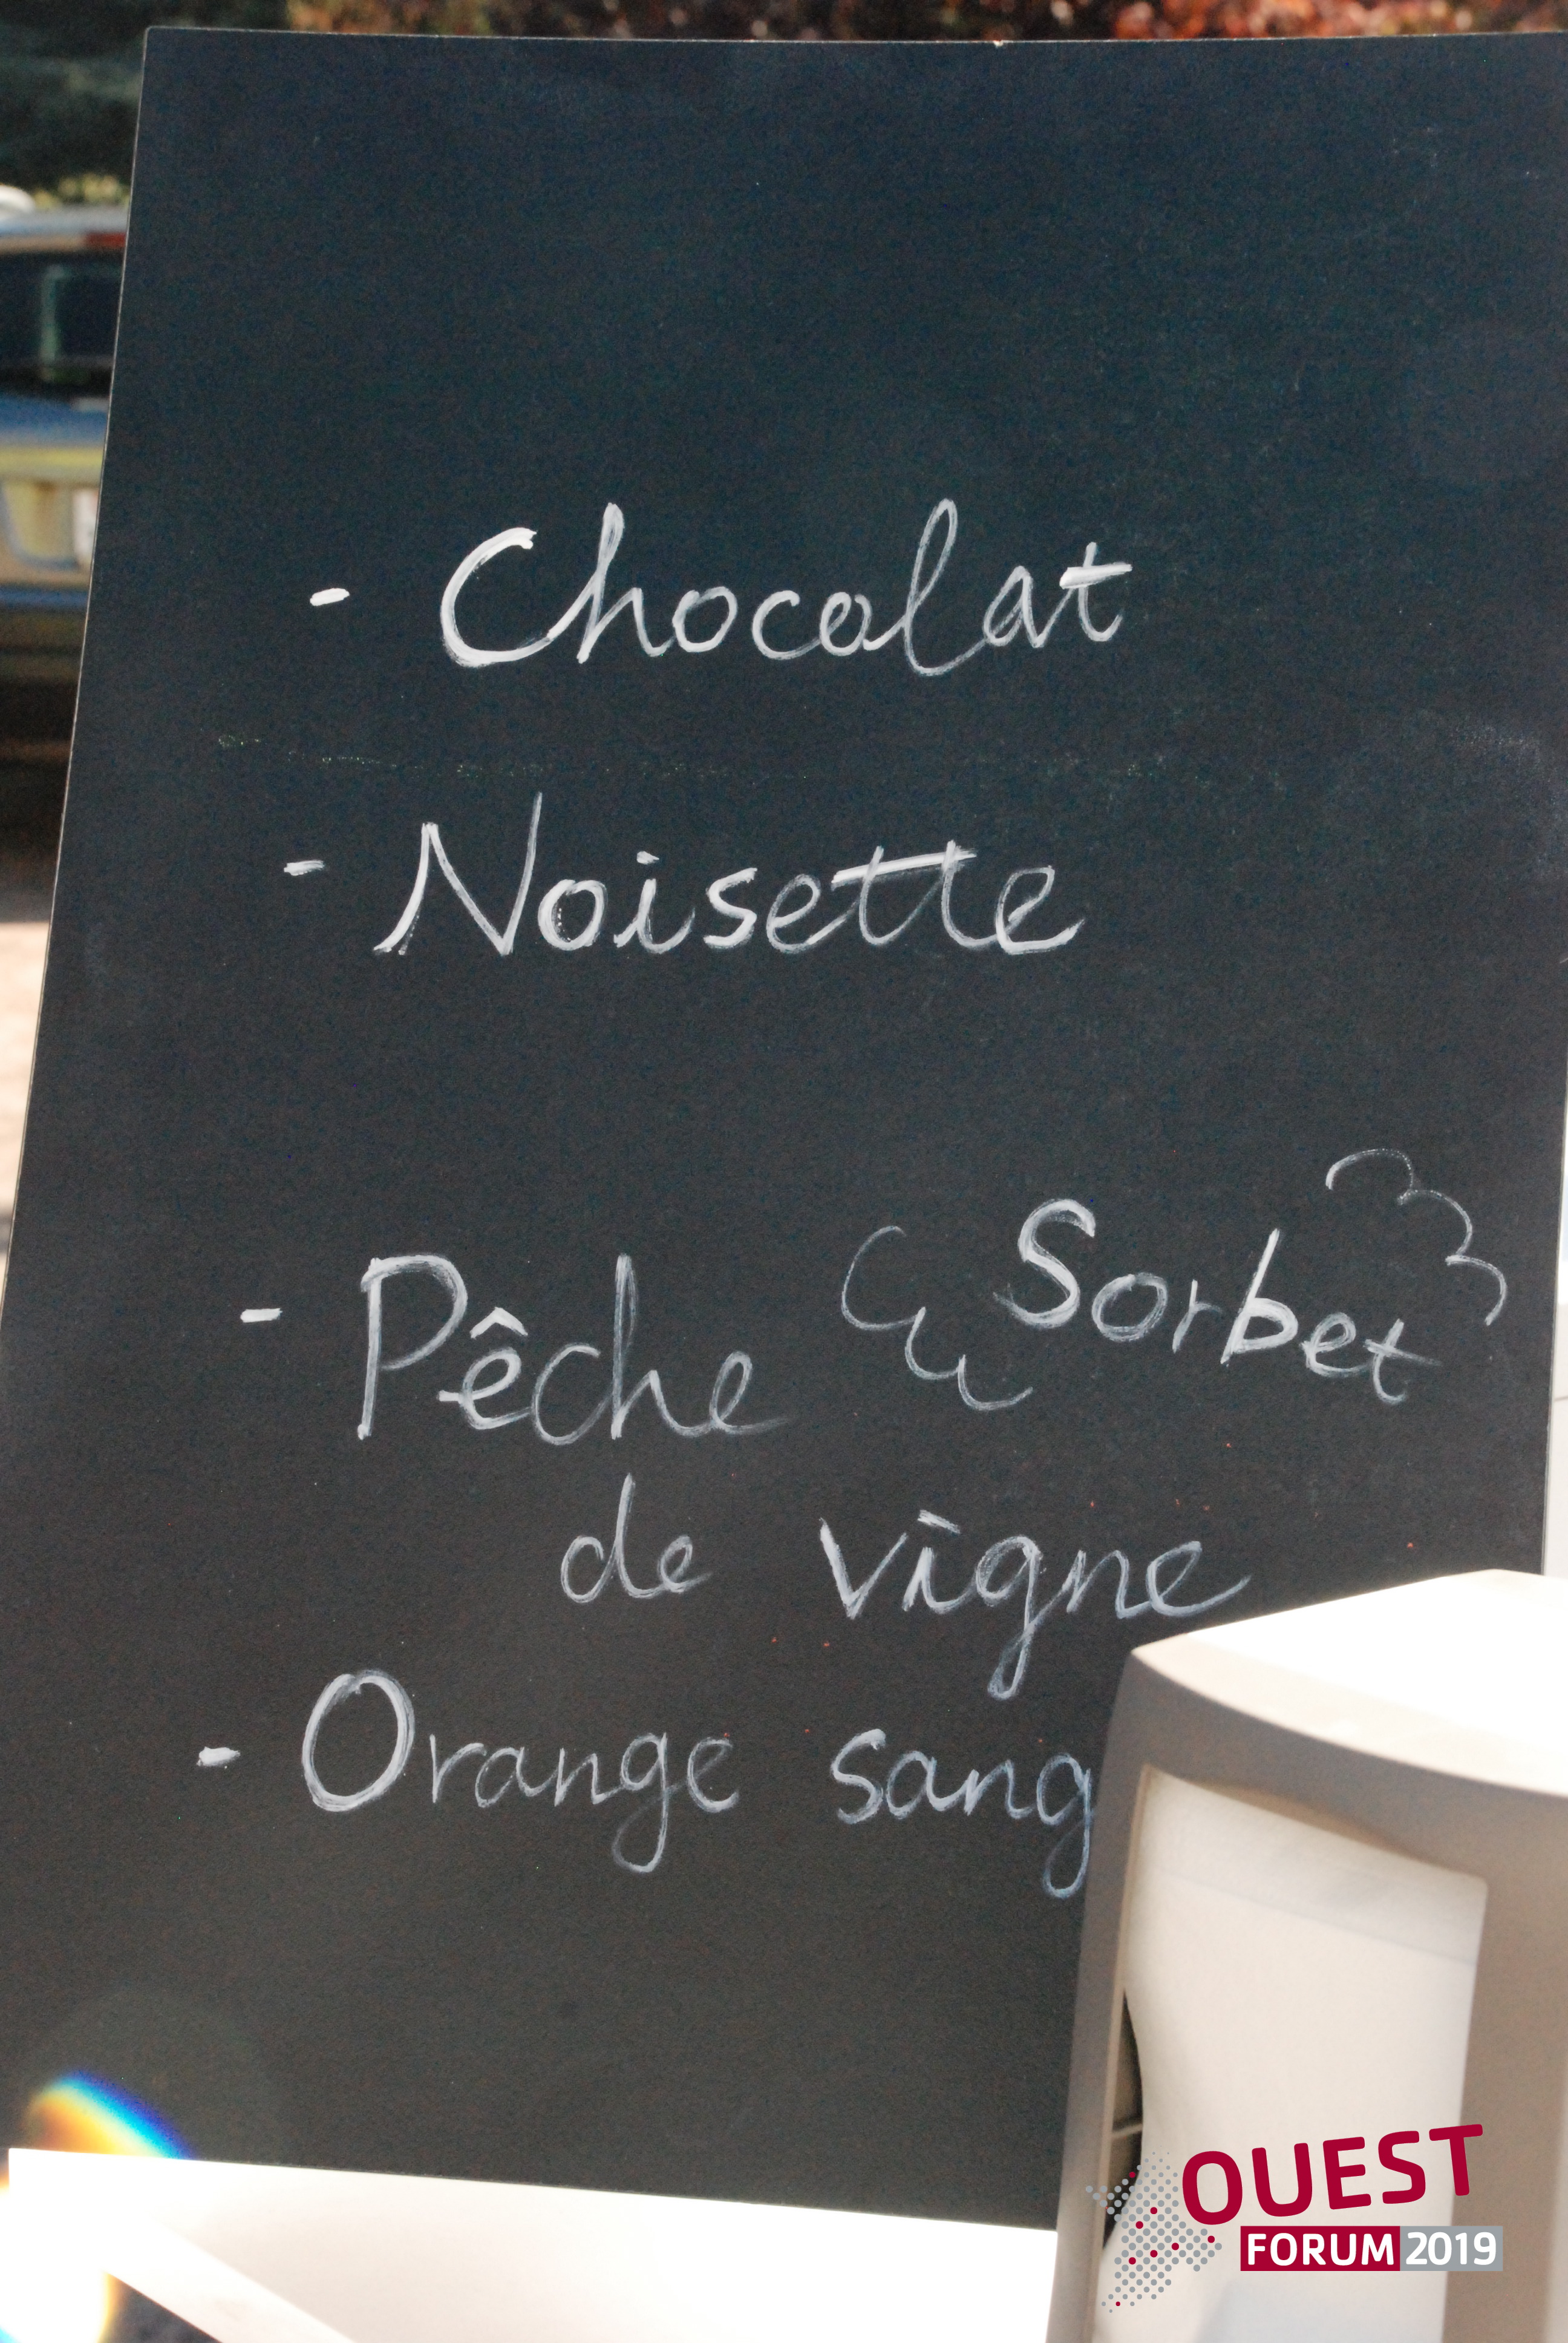 - Chocolat
- Noisette
- Pêche Sorbet
de vigne
- Orange sang
OUEST
FORUM 2019